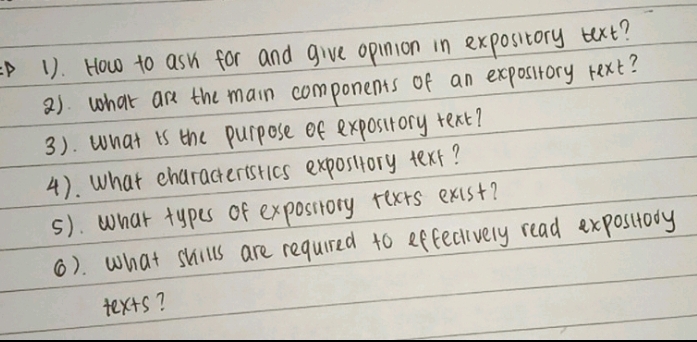 1). How to ask for and give opinion in expository text?
2). what are the main components of an expository text?
3). What is the purpose of expository text?
4). What characteristics expository text?
5). what types of expository texts exist?
6). what skills are required to effectively read expository
texts?